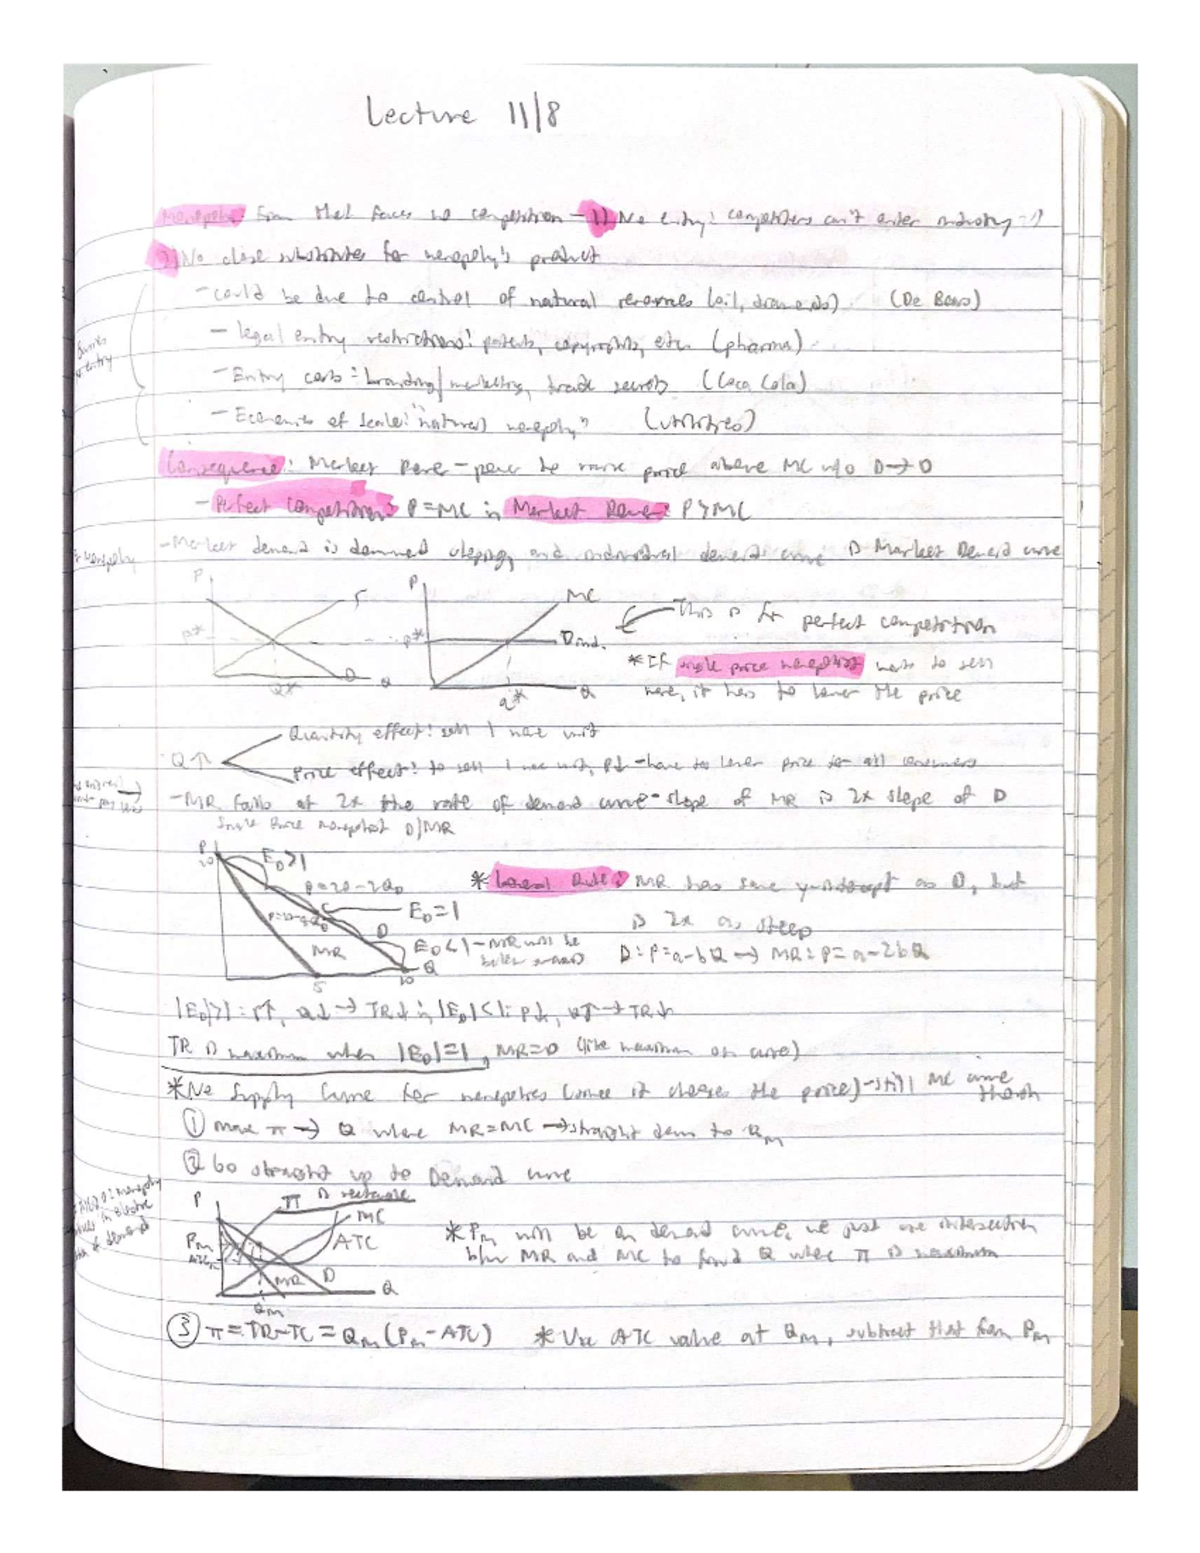 Lecture 11/8
Monopoly: firm that faces no competition - 1) No entry: competitors can't enter industry
2) No close substitutes for monopoly's product
- could be due to control of natural resources (oil, diamonds) (De Beers)
- legal entry restrictions: patents, copyrights, etc. (pharma)
- Entry costs: branding/marketing, trade secrets (Coca Cola)
- Economies of scale: "natural monopoly" (utilities)
Barriers
to entry
Consequence: Market Power - power to raise price above MC w/o D→0
- Perfect Competition: P=MC; in Market Power: P>MC
monopoly
- Market demand is downward sloping, and individual demand curve is Market Demand curve
P
S
P*
D
Q
Q*
P
MC
P*
Dind.
Q
q*
This is for perfect competition
*If single price monopolist wants to sell
more, it has to lower the price
Q↑
Quantity effect: sell 1 more unit
Price effect: to sell 1 more unit, P↓ - have to lower price for all consumers
- MR falls at 2x the rate of demand curve - slope of MR is 2x slope of D
Single Price Monopolist D/MR
P
20
ED>1
P=20-2QD
ED=1
D
MR
ED<1 - MR will be
below
Q
5
10
*General Rule: MR has same y-intercept as D, but
is 2x as steep
D: P=a-bQ → MR: P=a-2bQ
|ED|>1: P↑, Q↓ → TR↓; |ED|<1: P↓, Q↑ → TR↓
TR is maximum when |ED|=1, MR=0 (like maximum on curve)
*No Supply Curve for monopolies (since it chooses the price) - still MC curve
though
① max π → Q where MR=MC → straight down to Qm
② Go straight up to Demand curve
monopoly
of demand
P
π is rectangle
MC
ATC
Pm
ATCm
MR
D
Q
Qm
*Pm will be on demand curve, we just use intersection
b/w MR and MC to find Q where π is maximum
③ π=TR-TC=Qm(Pm-ATC) *Use ATC value at Qm, subtract that from Pm